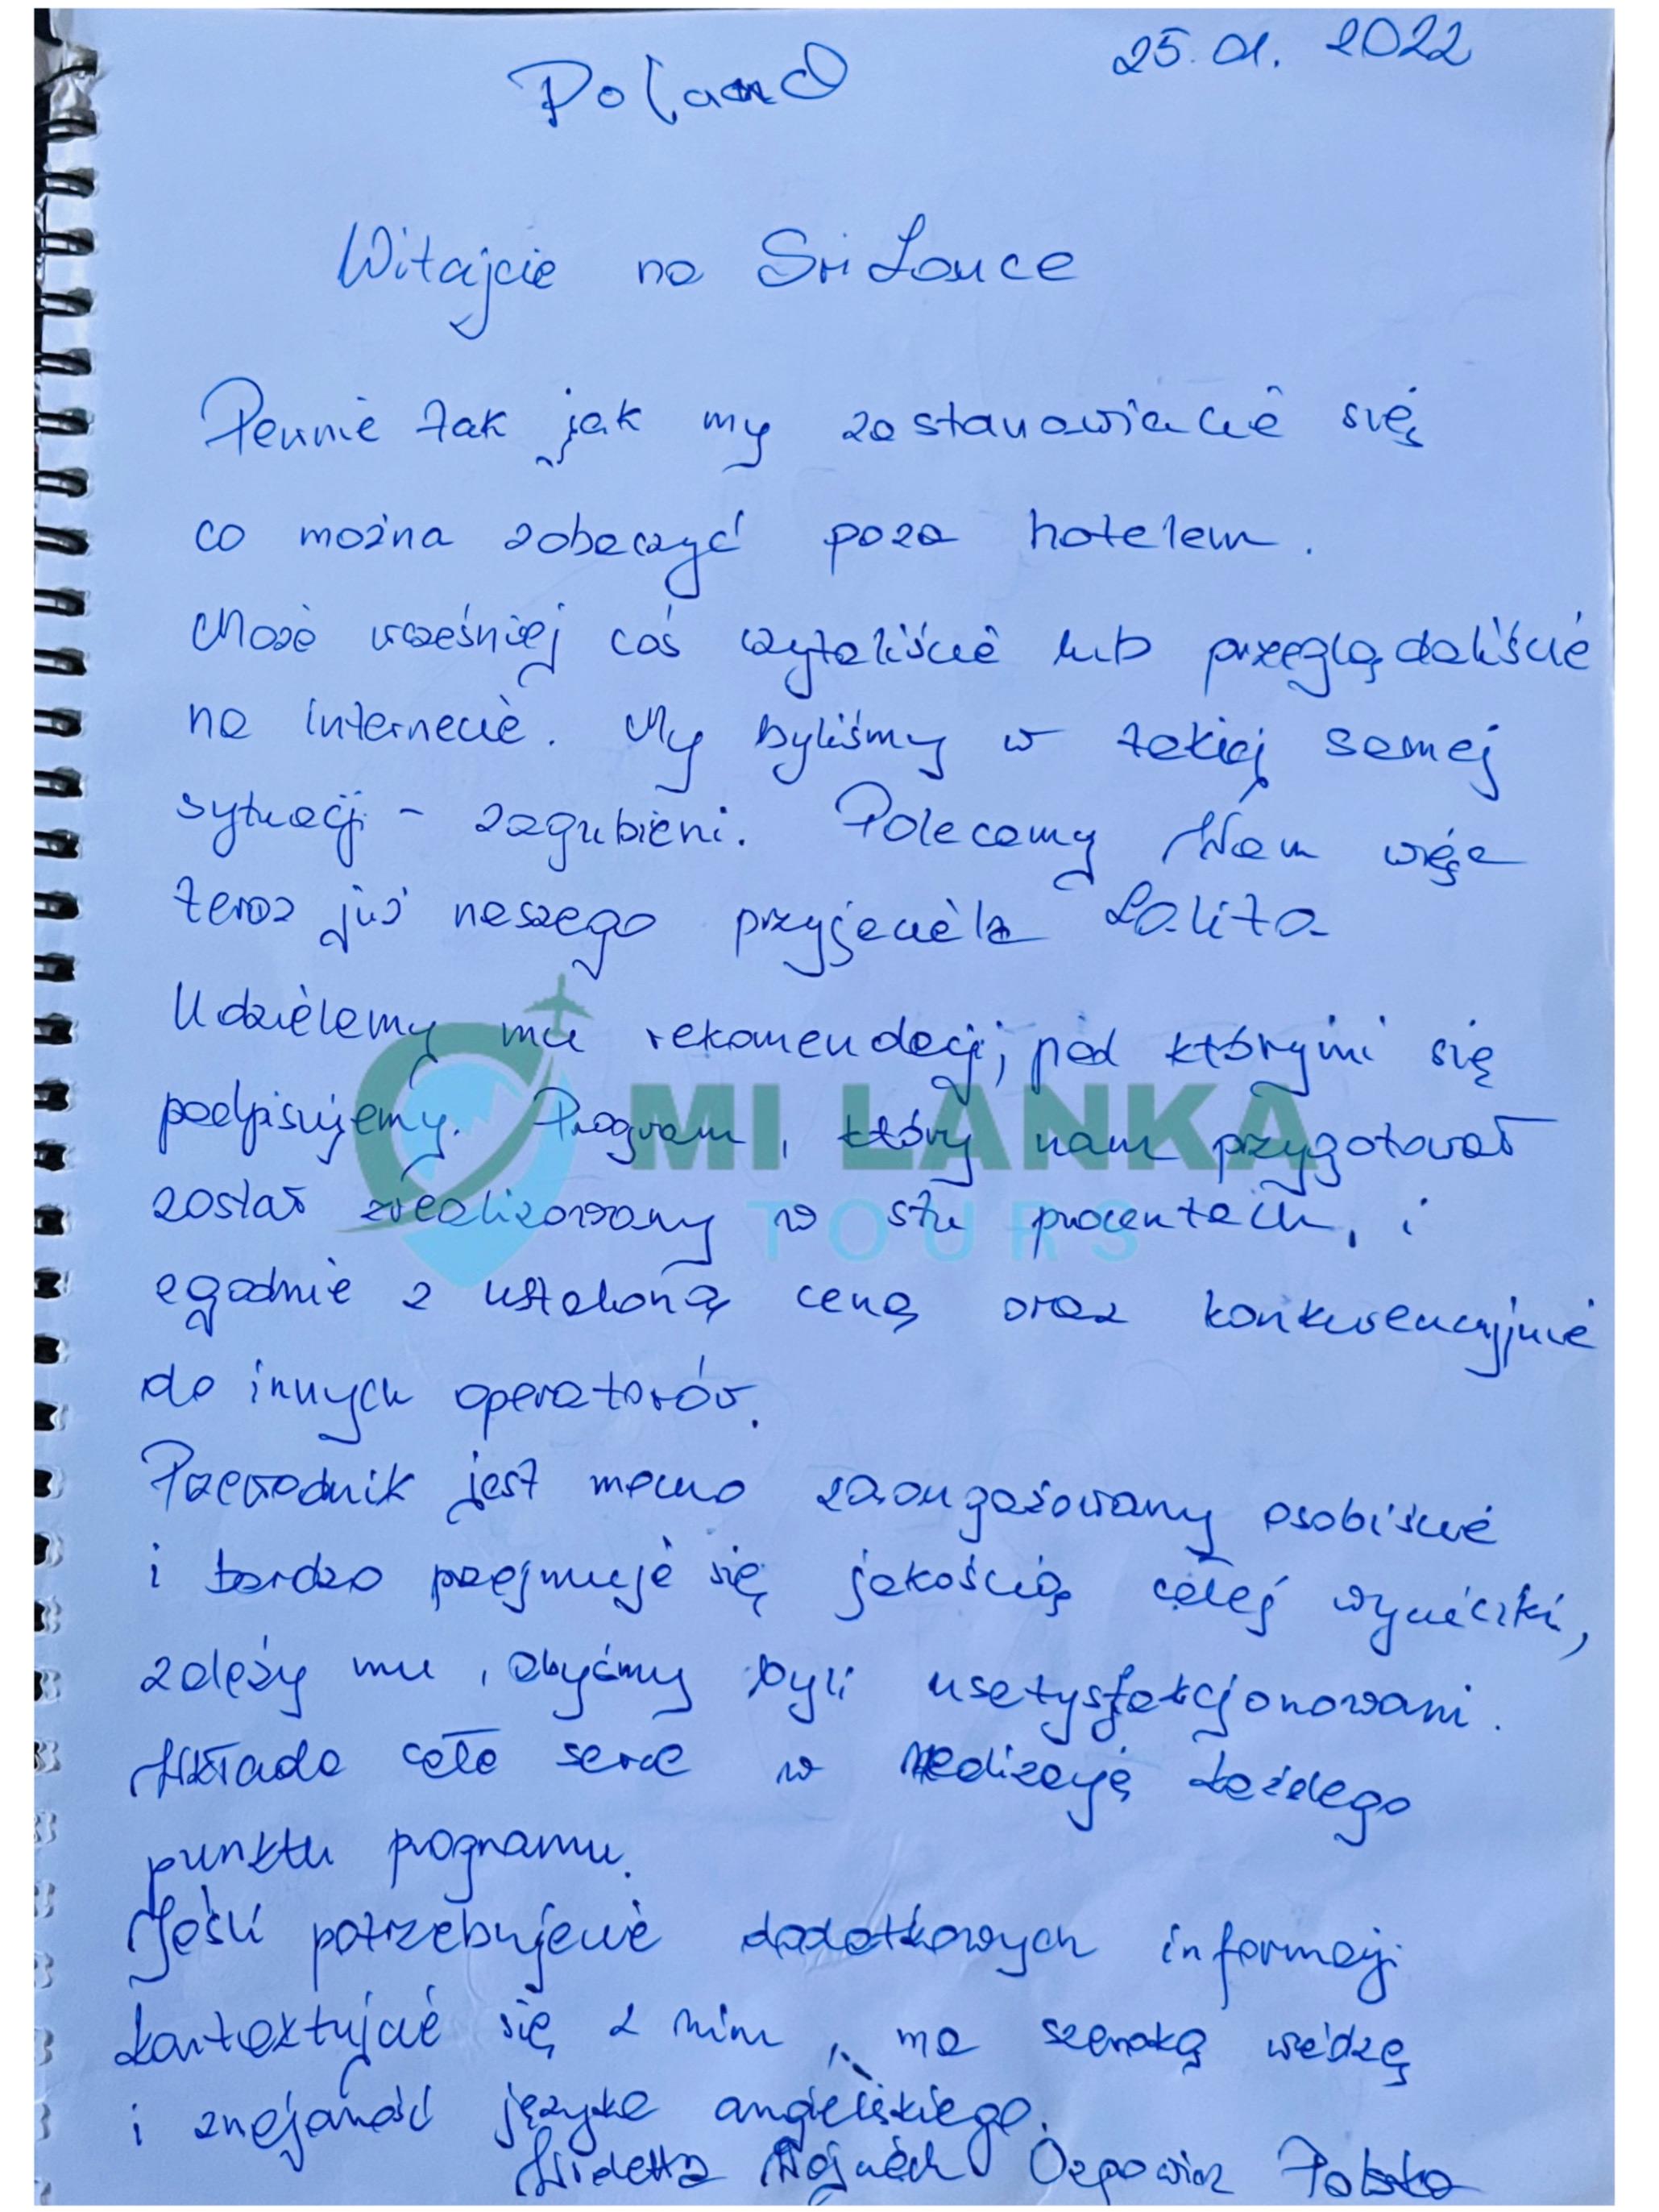 Poland 25.01.2022
Witajcie na Sri Lance
Pewnie tak jak my zastanawiacie się
co można zobaczyć poza hotelem.
Może wcześniej coś czytaliście lub przeglądaliście
na internecie. My byliśmy w takiej samej
sytuacji - zagubieni. Polecamy Wam więc
teraz już naszego przyjaciela Lalita
Udzielamy mu rekomendacji, pod którymi się
podpisujemy. Program, który nam przygotował
MI LANKA
został zrealizowany w stu procentach, i
TOURS
zgodnie z ustaloną ceną oraz konkurencyjnie
do innych operatorów.
Przewodnik jest mocno zaangażowany osobiście
i bardzo przejmuje się jakością całej wycieczki,
zależy mu, abyśmy byli usatysfakcjonowani.
Wkłada całe serce w realizację każdego
punktu programu.
Jeśli potrzebujecie dodatkowych informacji
kontaktujcie się z nim, ma szeroką wiedzę
i znajomość języka angielskiego.
Wioletta Wojciech Polska